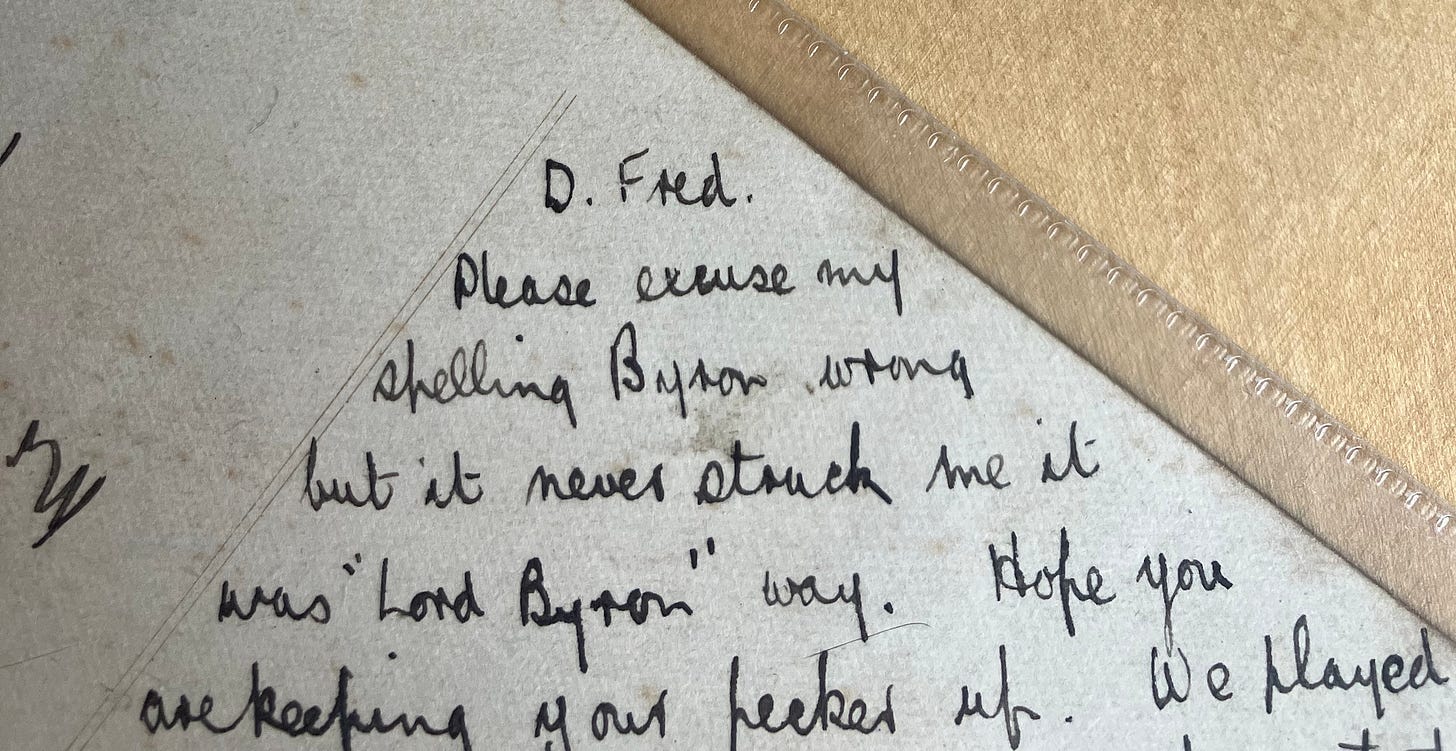 D. Fred.
Please excuse my
spelling Byron wrong
but it never struck me it
was "Lord Byron" way. Hope you
are keeping your pecker up. We played